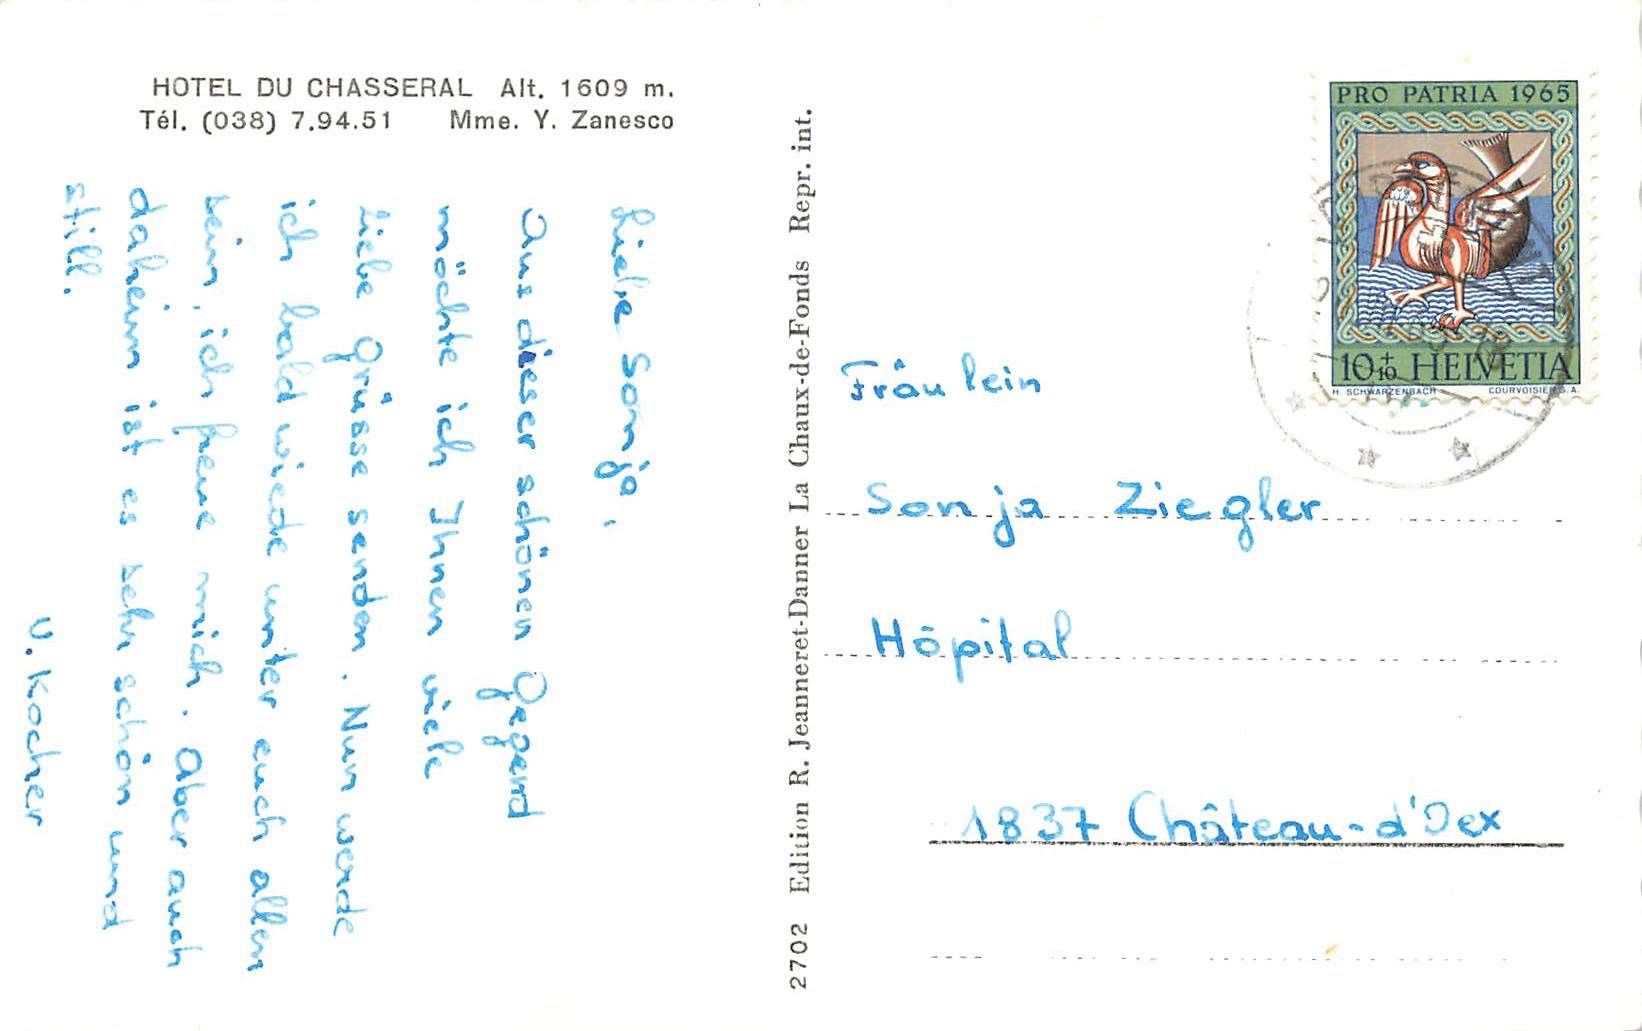 HOTEL DU CHASSERAL Alt. 1609 m.
Tél. (038) 7.94.51 Mme. Y. Zanesco
Liebe Sonja,
Aus dieser schönen Gegend
möchte ich Ihnen viele
liebe Grüsse senden. Nun werde
ich bald wiede unter euch allen
sein, ich freue mich. Aber auch
daheim ist es sehr schön und
still.
V. Kocher
2702 Edition R. Jeanneret-Danner La Chaux-de-Fonds Repr. int.
PRO PATRIA 1965
10+10 HELVETIA
H. SCHWARZENBACH COURVOISIER S.A.
Fräulein
Sonja Ziegler
Hôpital
1837 Château-d'Oex